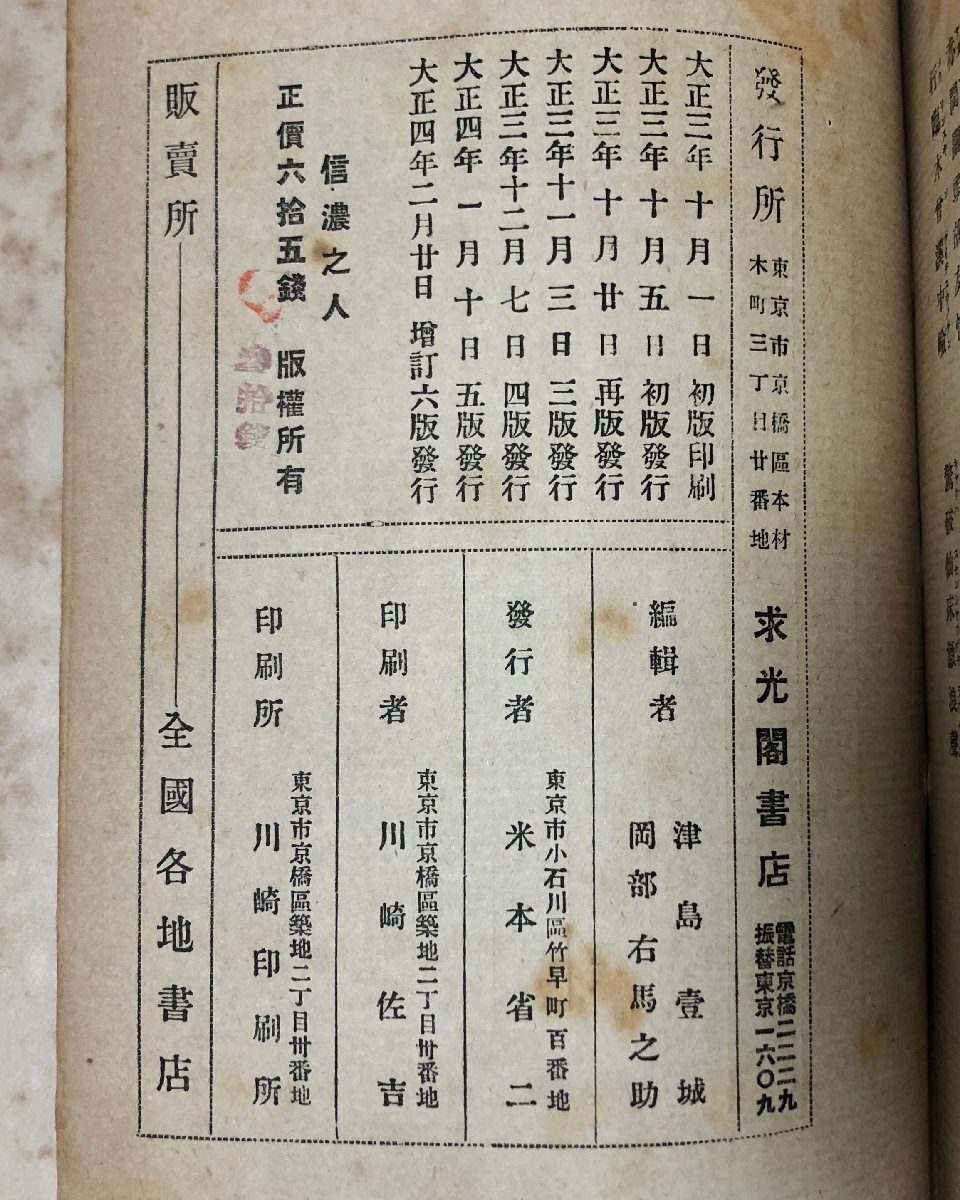 發行所
東京市京橋區本材
木町三丁目廿番地
求光閣書店
電話京橋二二二九
振替東京一六〇九
大正三年十月一日初版印刷
大正三年十月五日初版發行
大正三年十月廿日再版發行
大正三年十一月三日三版發行
大正三年十二月七日四版發行
大正四年一月十日五版發行
大正四年二月廿日增訂六版發行
信濃之人
正價六拾五錢 版權所有
編輯者
津島壹城
岡部右馬之助
發行者
東京市小石川區竹早町百番地
米本省二
印刷者
東京市京橋區築地二丁目卅番地
川崎佐吉
印刷所
東京市京橋區築地二丁目卅番地
川崎印刷所
販賣所
全國各地書店